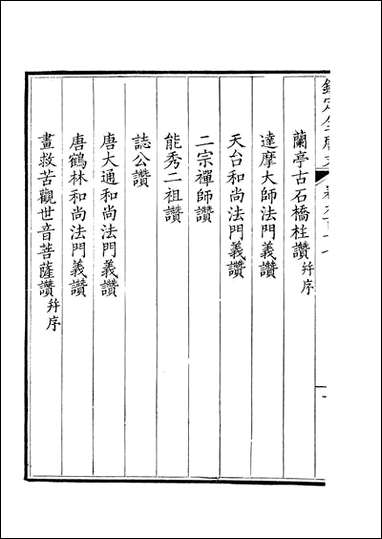 蘭亭古石橋柱讚并序
達摩大師法門義讚
天台和尚法門義讚
二宗禪師讚
能秀二祖讚
誌公讚
唐大通和尚法門義讚
唐鶴林和尚法門義讚
畫救苦觀世音菩薩讚并序